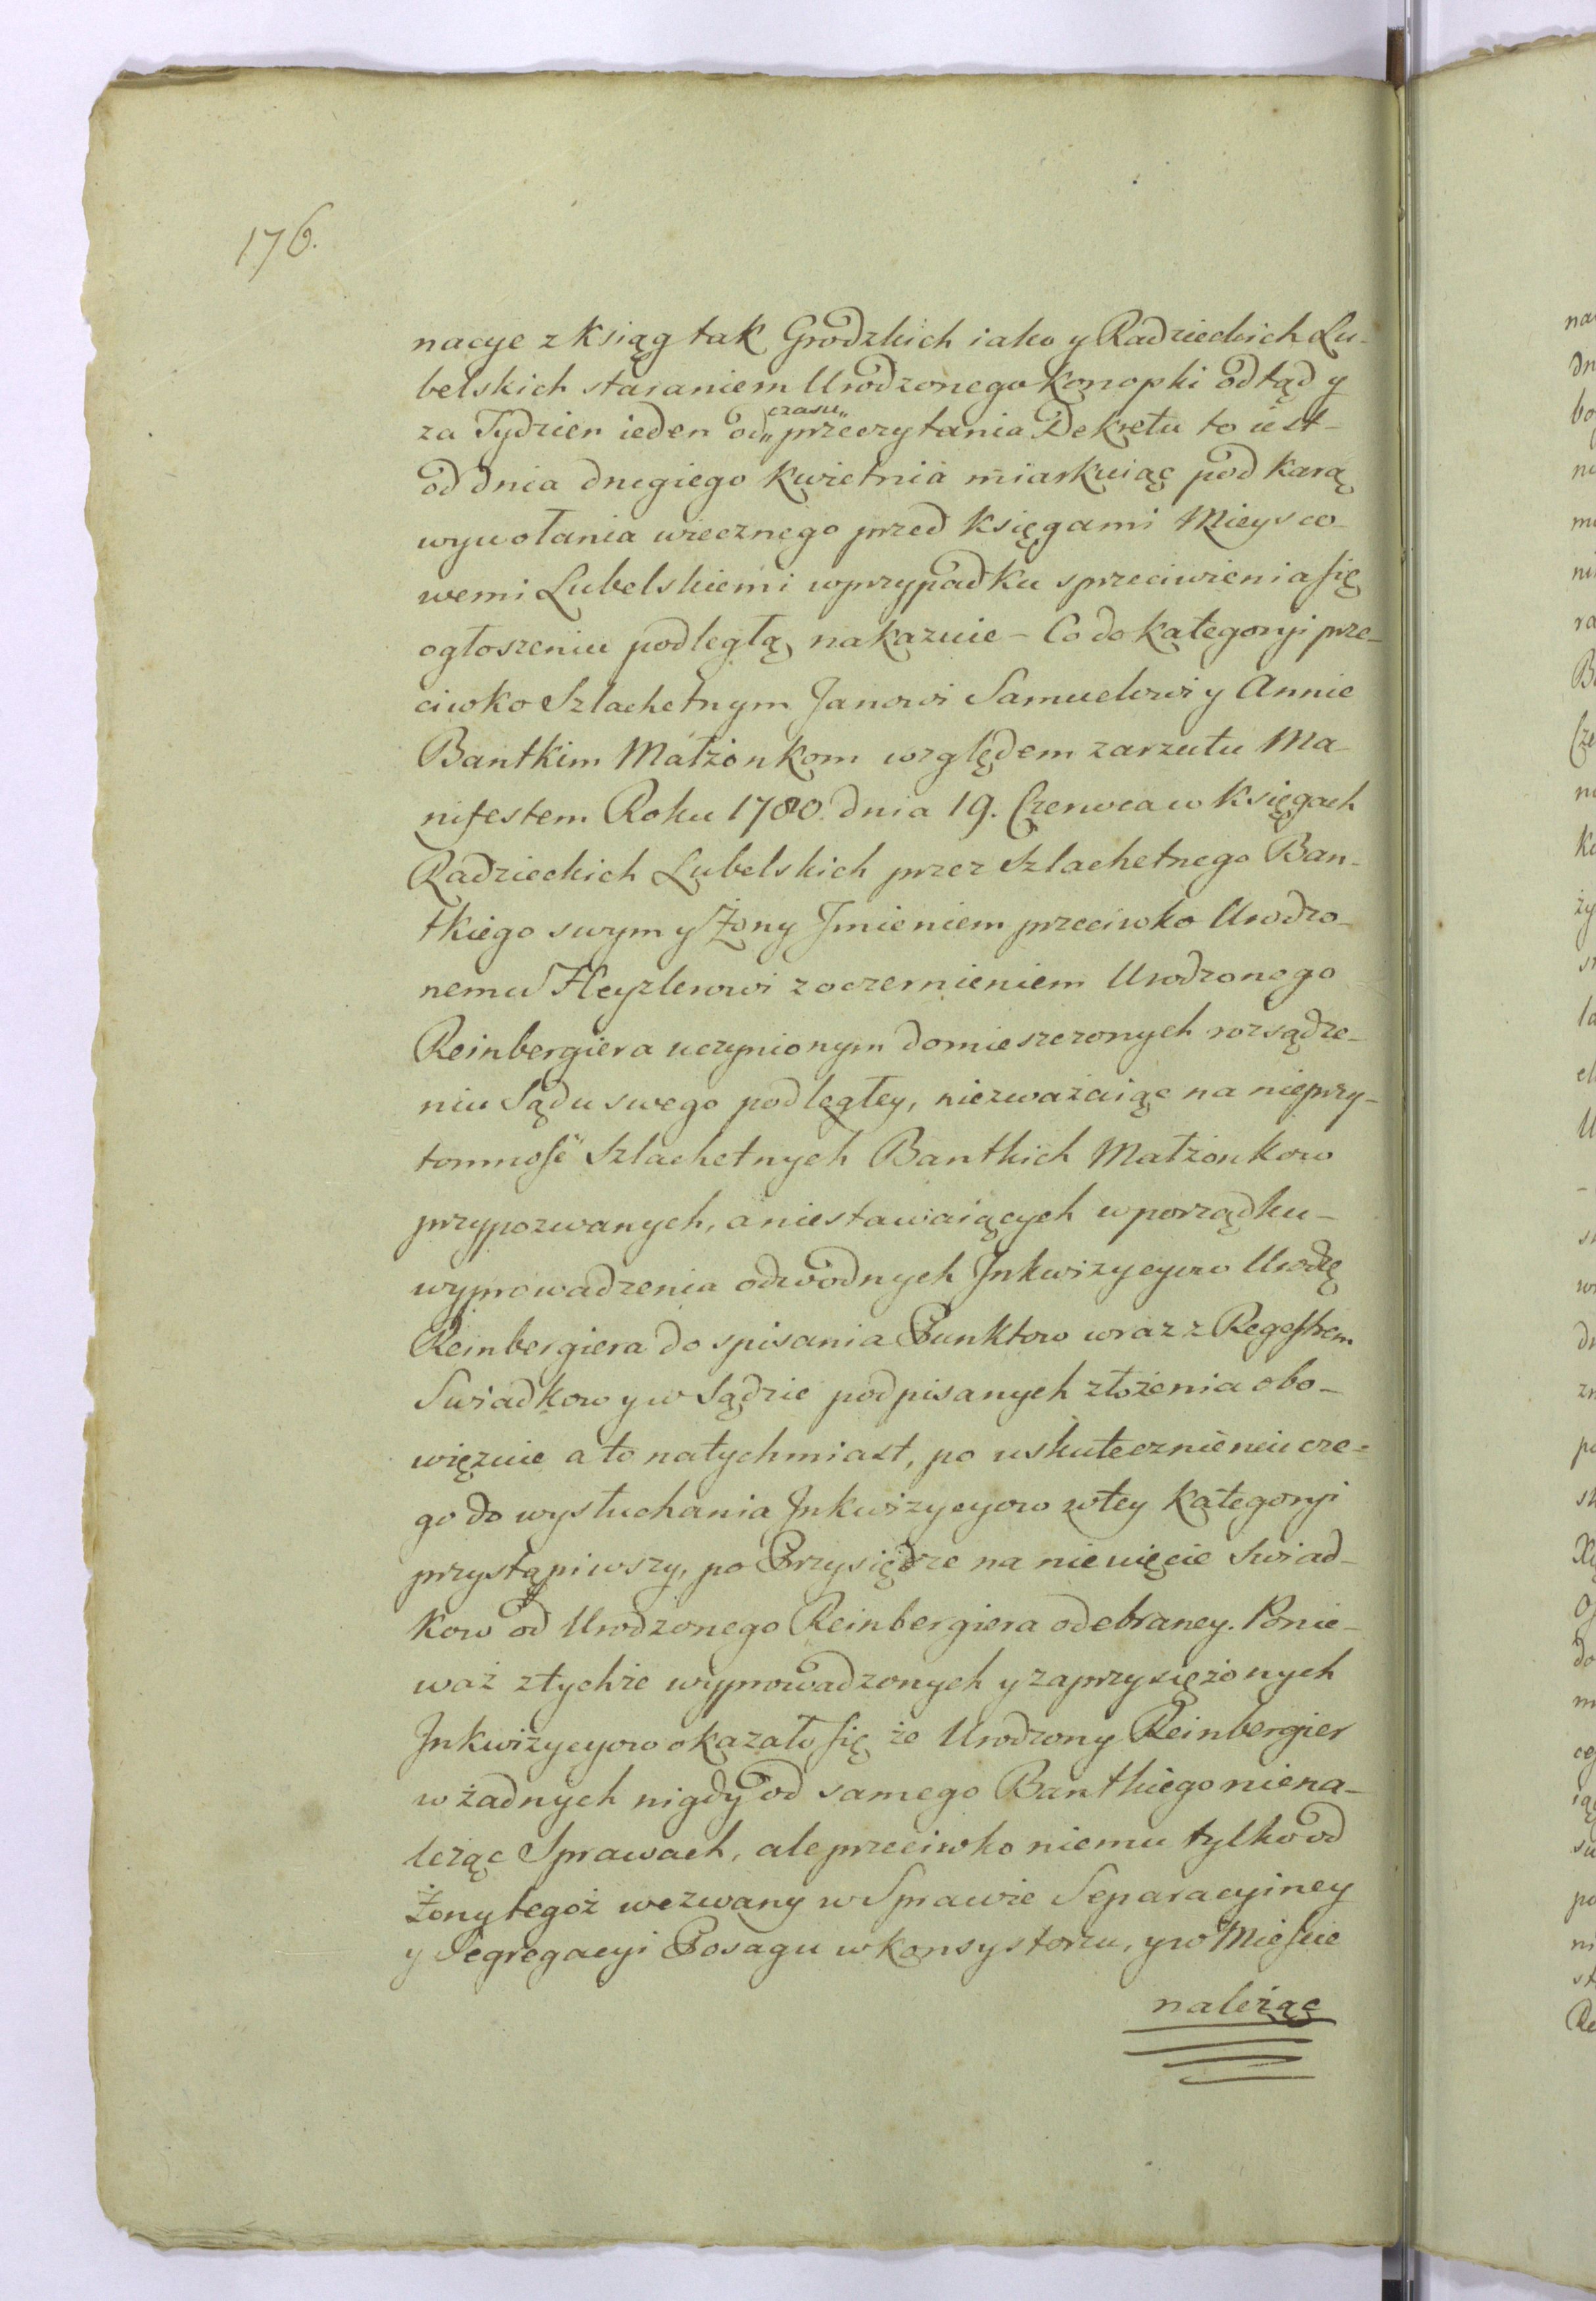 176.
nacye z Ksiąg tak Grodzkich iako y Radzieckich Lu-
belskich staraniem Urodzonego Konopki odtąd y
za Tydzien ieden od „czasu„ przeczytania Dekretu to iest-
od dnia drugiego Kwietnia miarkuiąc pod karą
wywołania wiecznego przed Księgami Mieysco-
wemi Lubelskiemi w przypadku sprzeciwienia się
ogłoszeniu podległą nakazuie – Co do kategoryi prze-
ciwko Szlachetnym Janowi Samuelowi y Annie
Bantkim Małżonkom względem zarzutu Ma-
nifestem Roku 1780. dnia 19. Czerwca w Księgach
Radzieckich Lubelskich przez Szlachetnego Ban-
tkiego swym y Żony Jmieniem przeciwko Urodzo-
nemu Heyzlerowi z oczernieniem Urodzonego
Reinbergiera uczynionym domieszczonych rozsądze-
niu Sądu swego podległey, niezważaiąc na nieprzy-
tomność Szlachetnych Bantkich Małżonkow
przypozwanych, a niestawaiących w porządku-
wyprowadzenia odwodnych Jnkwizycyow Urodzę
Reinbergiera do spisania Punktow wraz z Regestrem
Swiadkow y w Sądzie podpisanych złożenia obo-
więzuie a to natychmiast, po uskutecznieniu cze-
go do wysłuchania Jnkwizycyow w tey Kategoryi
przystąpiwszy, po Przysiędze na nieuięcie Swiad-
kow od Urodzonego Reinbergiera odebraney. Ponie-
waż z tychże wyprowadzonych y zaprzysiężonych
Jnkwizycyow okazało się że Urodzony Reinbergier
w żadnych nigdy od samego Bantkiego niena-
leżąc Sprawach, ale przeciwko niemu tylko od
Żony tegoż wezwany w Sprawie Separacyiney
y Segregacyi Posagu w Konsystorzu, y w Mieście
należąc